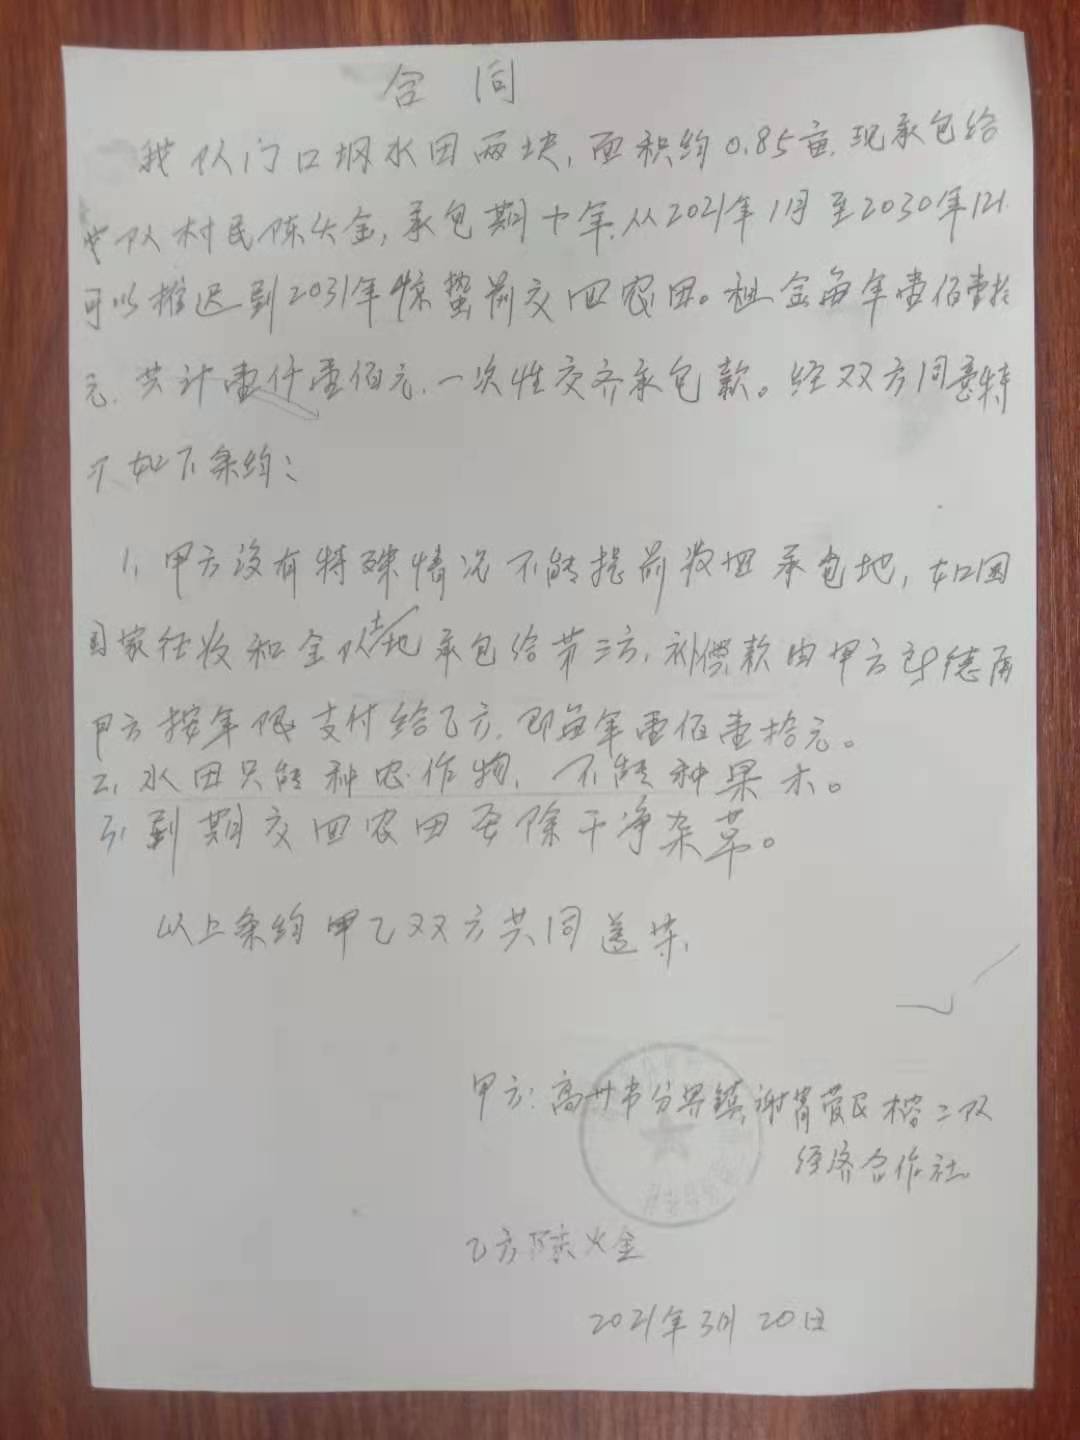 合同
我队门口垌水田两块，面积约0.85亩，现承包给
队村民陈火金，承包期十年，从2021年1月至2030年12
可以推迟到2031年惊蛰前交回农田。租金每年壹佰壹拾
元，共计壹仟壹佰元，一次性交齐承包款。经双方同意特
如下条约：
1，甲方没有特殊情况不能提前收回承包地，如国
家征收和全队土地承包给第三方，补偿款由甲方
甲方按年限支付给乙方，即每年壹佰壹拾元。
2，水田只能种农作物，不能种果木。
3，到期交回农田要除干净杂草。
以上条约甲乙双方共同遵
甲方：高州市分界镇谢 二队
经济合作社
乙方陈火金
2021年3月20日